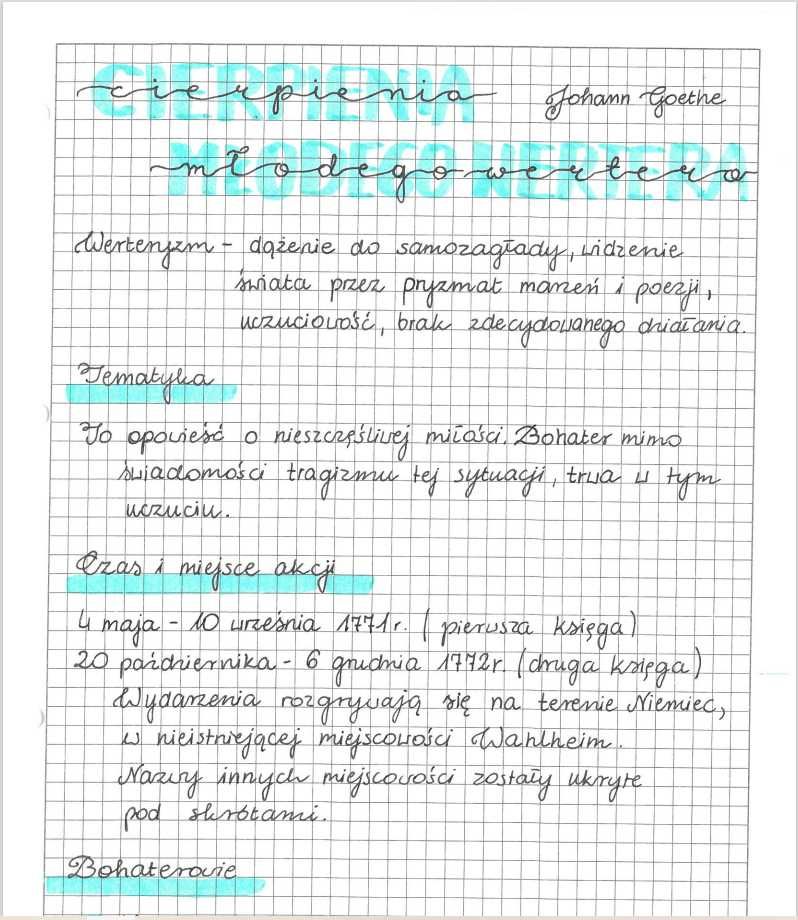 CIERPIENIA
cierpienia Johann Goethe
MŁODEGO WERTERA
młodego wertera
Werteryzm - dążenie do samozagłady, widzenie
świata przez pryzmat marzeń i poezji,
uczuciowość, brak zdecydowanego działania.
Tematyka
To opowieść o nieszczęśliwej miłości. Bohater mimo
świadomości tragizmu tej sytuacji, trwa w tym
uczuciu.
Czas i miejsce akcji
4 maja - 10 września 1771r. (pierwsza księga)
20 października - 6 grudnia 1772r. (druga księga)
Wydarzenia rozgrywają się na terenie Niemiec,
w nieistniejącej miejscowości Wahlheim.
Nazwy innych miejscowości zostały ukryte
pod skrótami.
Bohaterowie